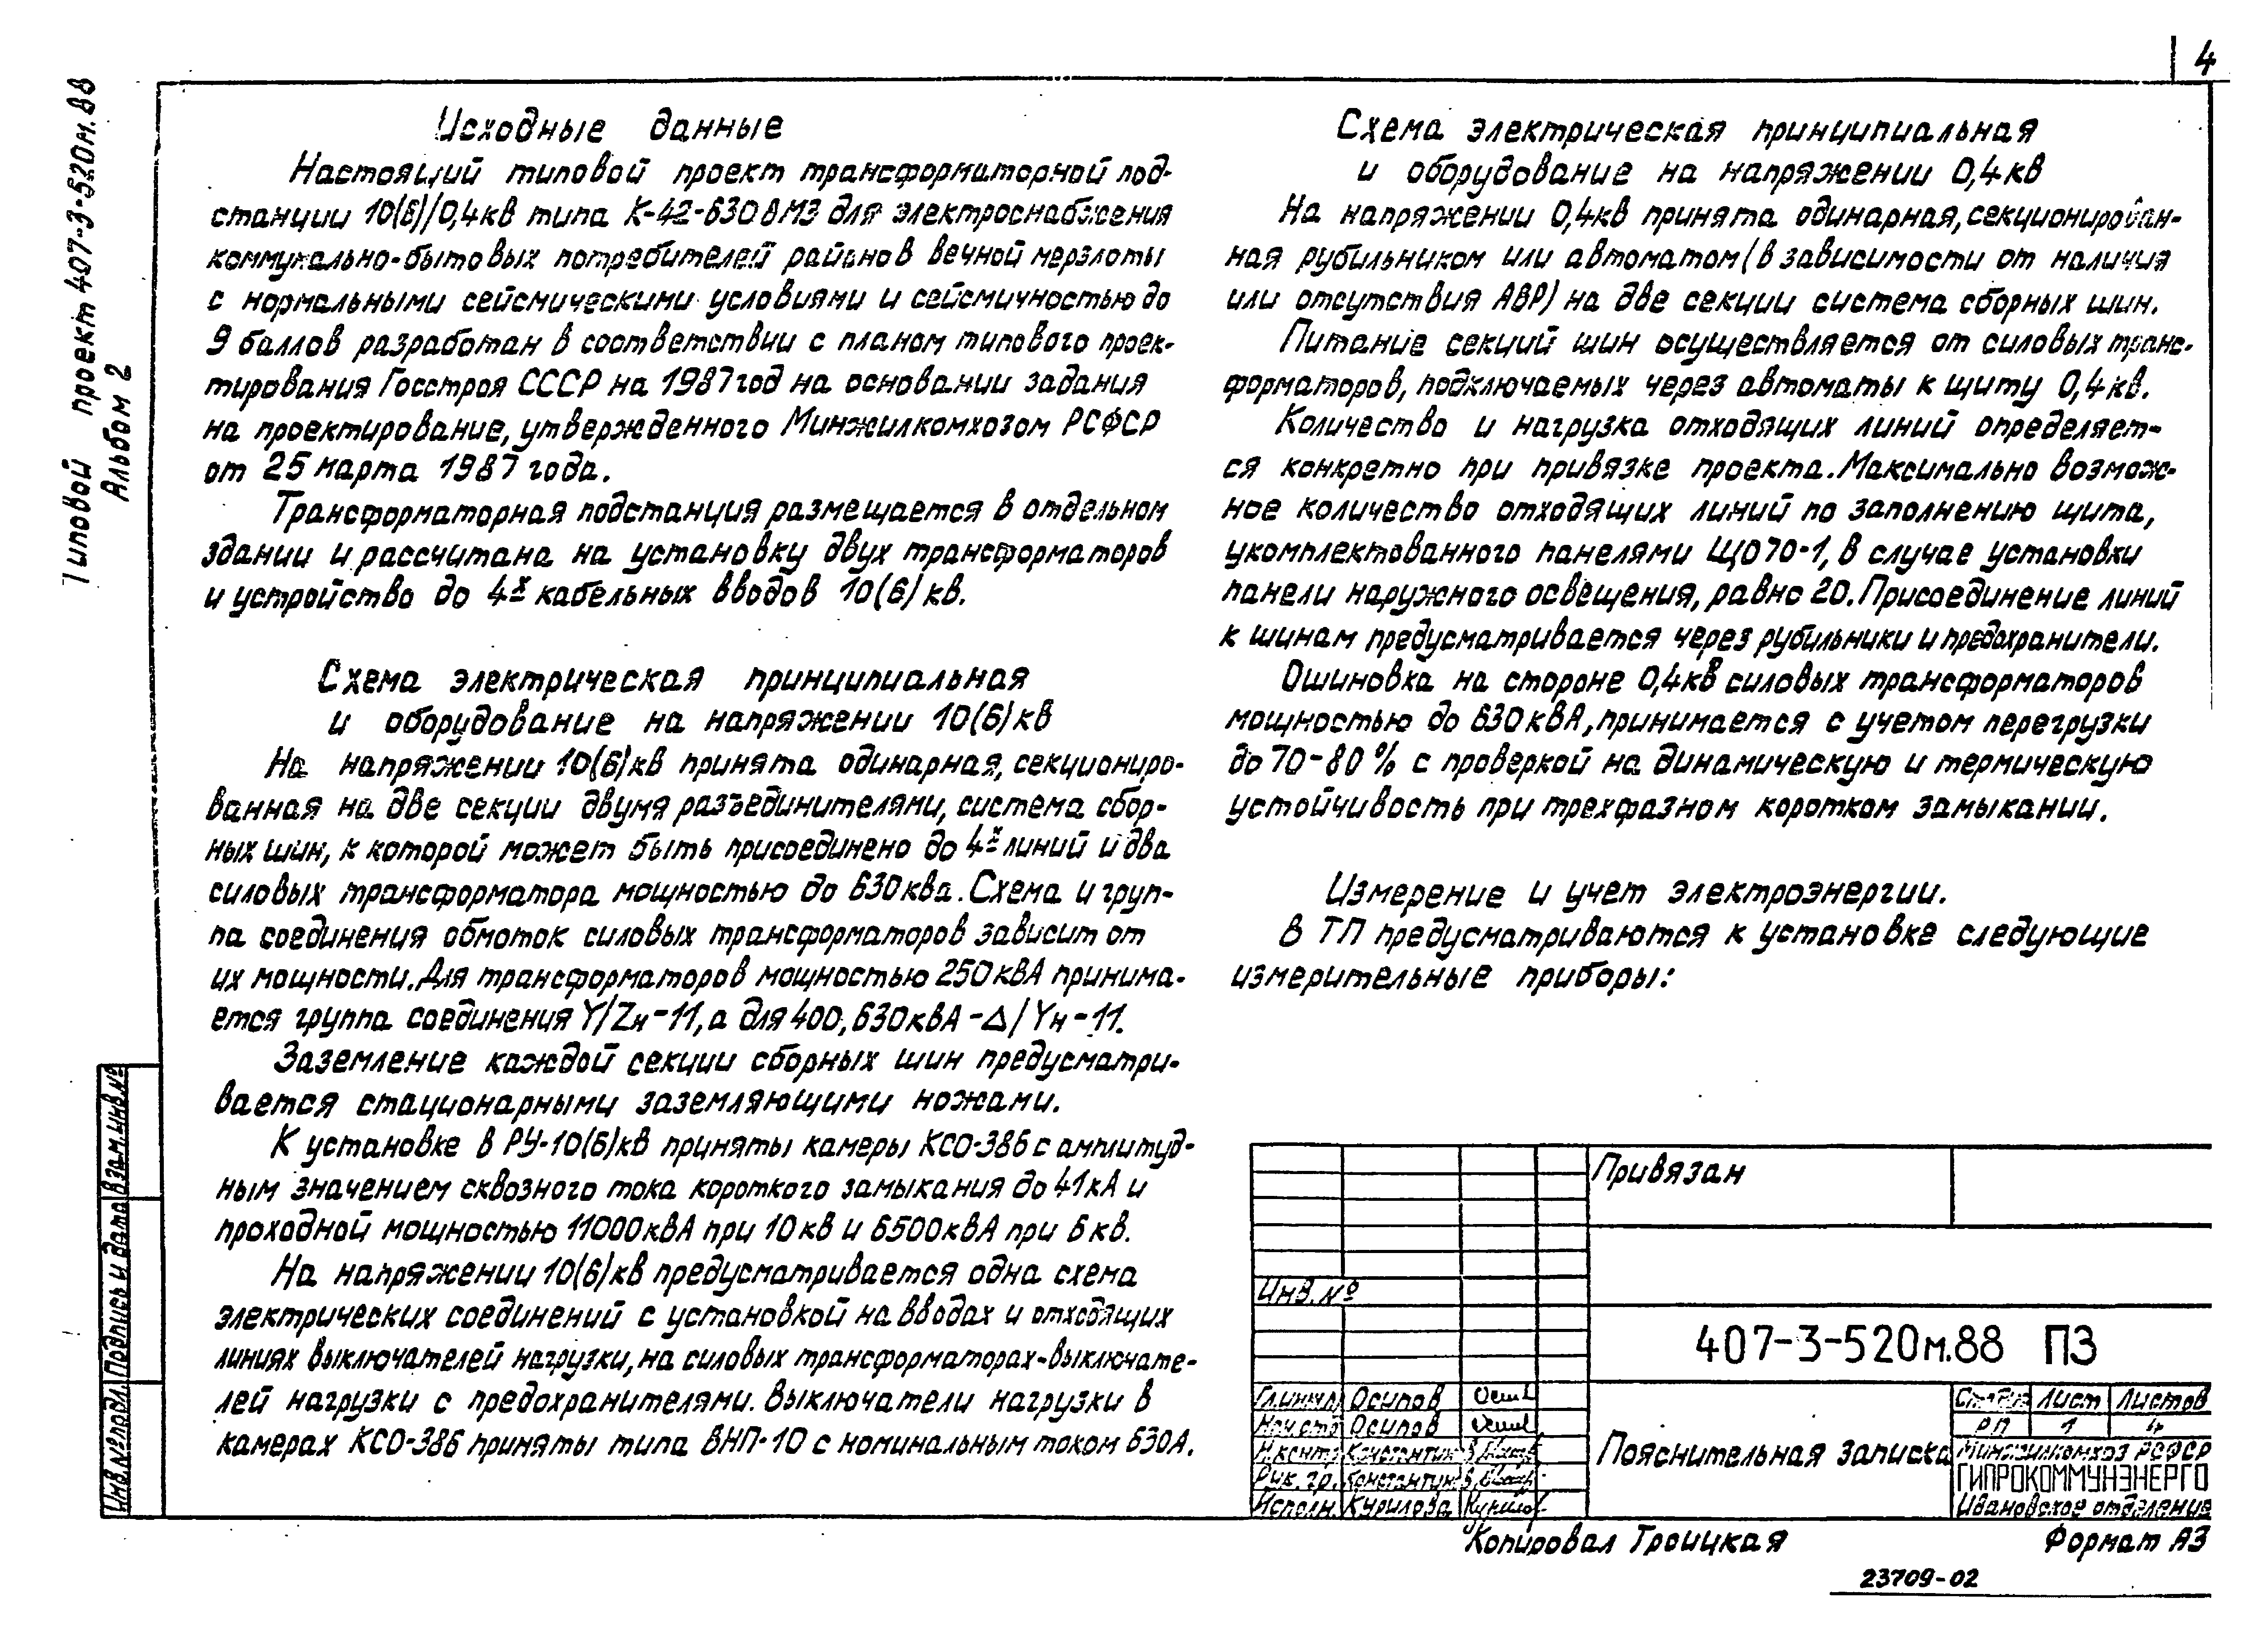 4
Типовой проект 407-3-520м.88
Альбом 2
Исходные данные
Настоящий типовой проект трансформаторной под-
станции 10(6)/0,4кв типа К-42-630ВМ3 для электроснабжения
коммунально-бытовых потребителей районов вечной мерзлоты
с нормальными сейсмическими условиями и сейсмичностью до
9 баллов разработан в соответствии с планом типового проек-
тирования Госстроя СССР на 1987год на основании задания
на проектирование, утвержденного Минжилкомхозом РСФСР
от 25 марта 1987 года.
Трансформаторная подстанция размещается в отдельном
здании и рассчитана на установку двух трансформаторов
и устройство до 4х кабельных вводов 10(6) кв.
Схема электрическая принципиальная
и оборудование на напряжении 10(6) кв
На напряжении 10(6) кв принята одинарная, секциониро-
ванная на две секции двумя разъединителями, система сбор-
ных шин, к которой может быть присоединено до 4х линий и два
силовых трансформатора мощностью до 630 ква. Схема и груп-
па соединения обмоток силовых трансформаторов зависит от
их мощности. Для трансформаторов мощностью 250 кВА принима-
ется группа соединения Y/Zн-11, а для 400, 630 кВА - Δ/Yн-11.
Заземление каждой секции сборных шин предусматри-
вается стационарными заземляющими ножами.
К установке в РУ-10(6)кв приняты камеры КСО-386 с амплитуд-
ным значением сквозного тока короткого замыкания до 41 кА и
проходной мощностью 11000 кВА при 10 кв и 6500 кВА при 6 кв.
На напряжении 10(6) кв предусматривается одна схема
электрических соединений с установкой на вводах и отходящих
линиях выключателей нагрузки, на силовых трансформаторах-выключате-
лей нагрузки с предохранителями. Выключатели нагрузки в
камерах КСО-386 приняты типа ВНП-10 с номинальным током 630А.
Схема электрическая принципиальная
и оборудование на напряжении 0,4 кв
На напряжении 0,4кв принята одинарная, секционирован-
ная рубильником или автоматом (в зависимости от наличия
или отсутствия АВР) на две секции система сборных шин.
Питание секций шин осуществляется от силовых транс-
форматоров, подключаемых через автоматы к щиту 0,4 кв.
Количество и нагрузка отходящих линий определяет-
ся конкретно при привязке проекта. Максимально возмож-
ное количество отходящих линий по заполнению щита,
укомплектованного панелями ЩО70-1, в случае установки
панели наружного освещения, равно 20. Присоединение линий
к шинам предусматривается через рубильники и предохранители.
Ошиновка на стороне 0,4кв силовых трансформаторов
мощностью до 630 кВА, принимается с учетом перегрузки
до 70-80 % с проверкой на динамическую и термическую
устойчивость при трехфазном коротком замыкании.
Измерение и учет электроэнергии.
В ТП предусматриваются к установке следующие
измерительные приборы:
Взам.инв.№
Подпись и дата
Инв.№подл.
Привязан
Инв.№
407-3-520м.88 ПЗ
Осипов
Осипов
Н.контр. Константин
Рук. гр. Константин
Исполн. Курилова
Пояснительная записка
Стадия Лист Листов
РП 1 4
Минжилкомхоз РСФСР
ГИПРОКОММУНЭНЕРГО
Ивановское отделение
Копировал Троицкая
Формат А3
23709-02